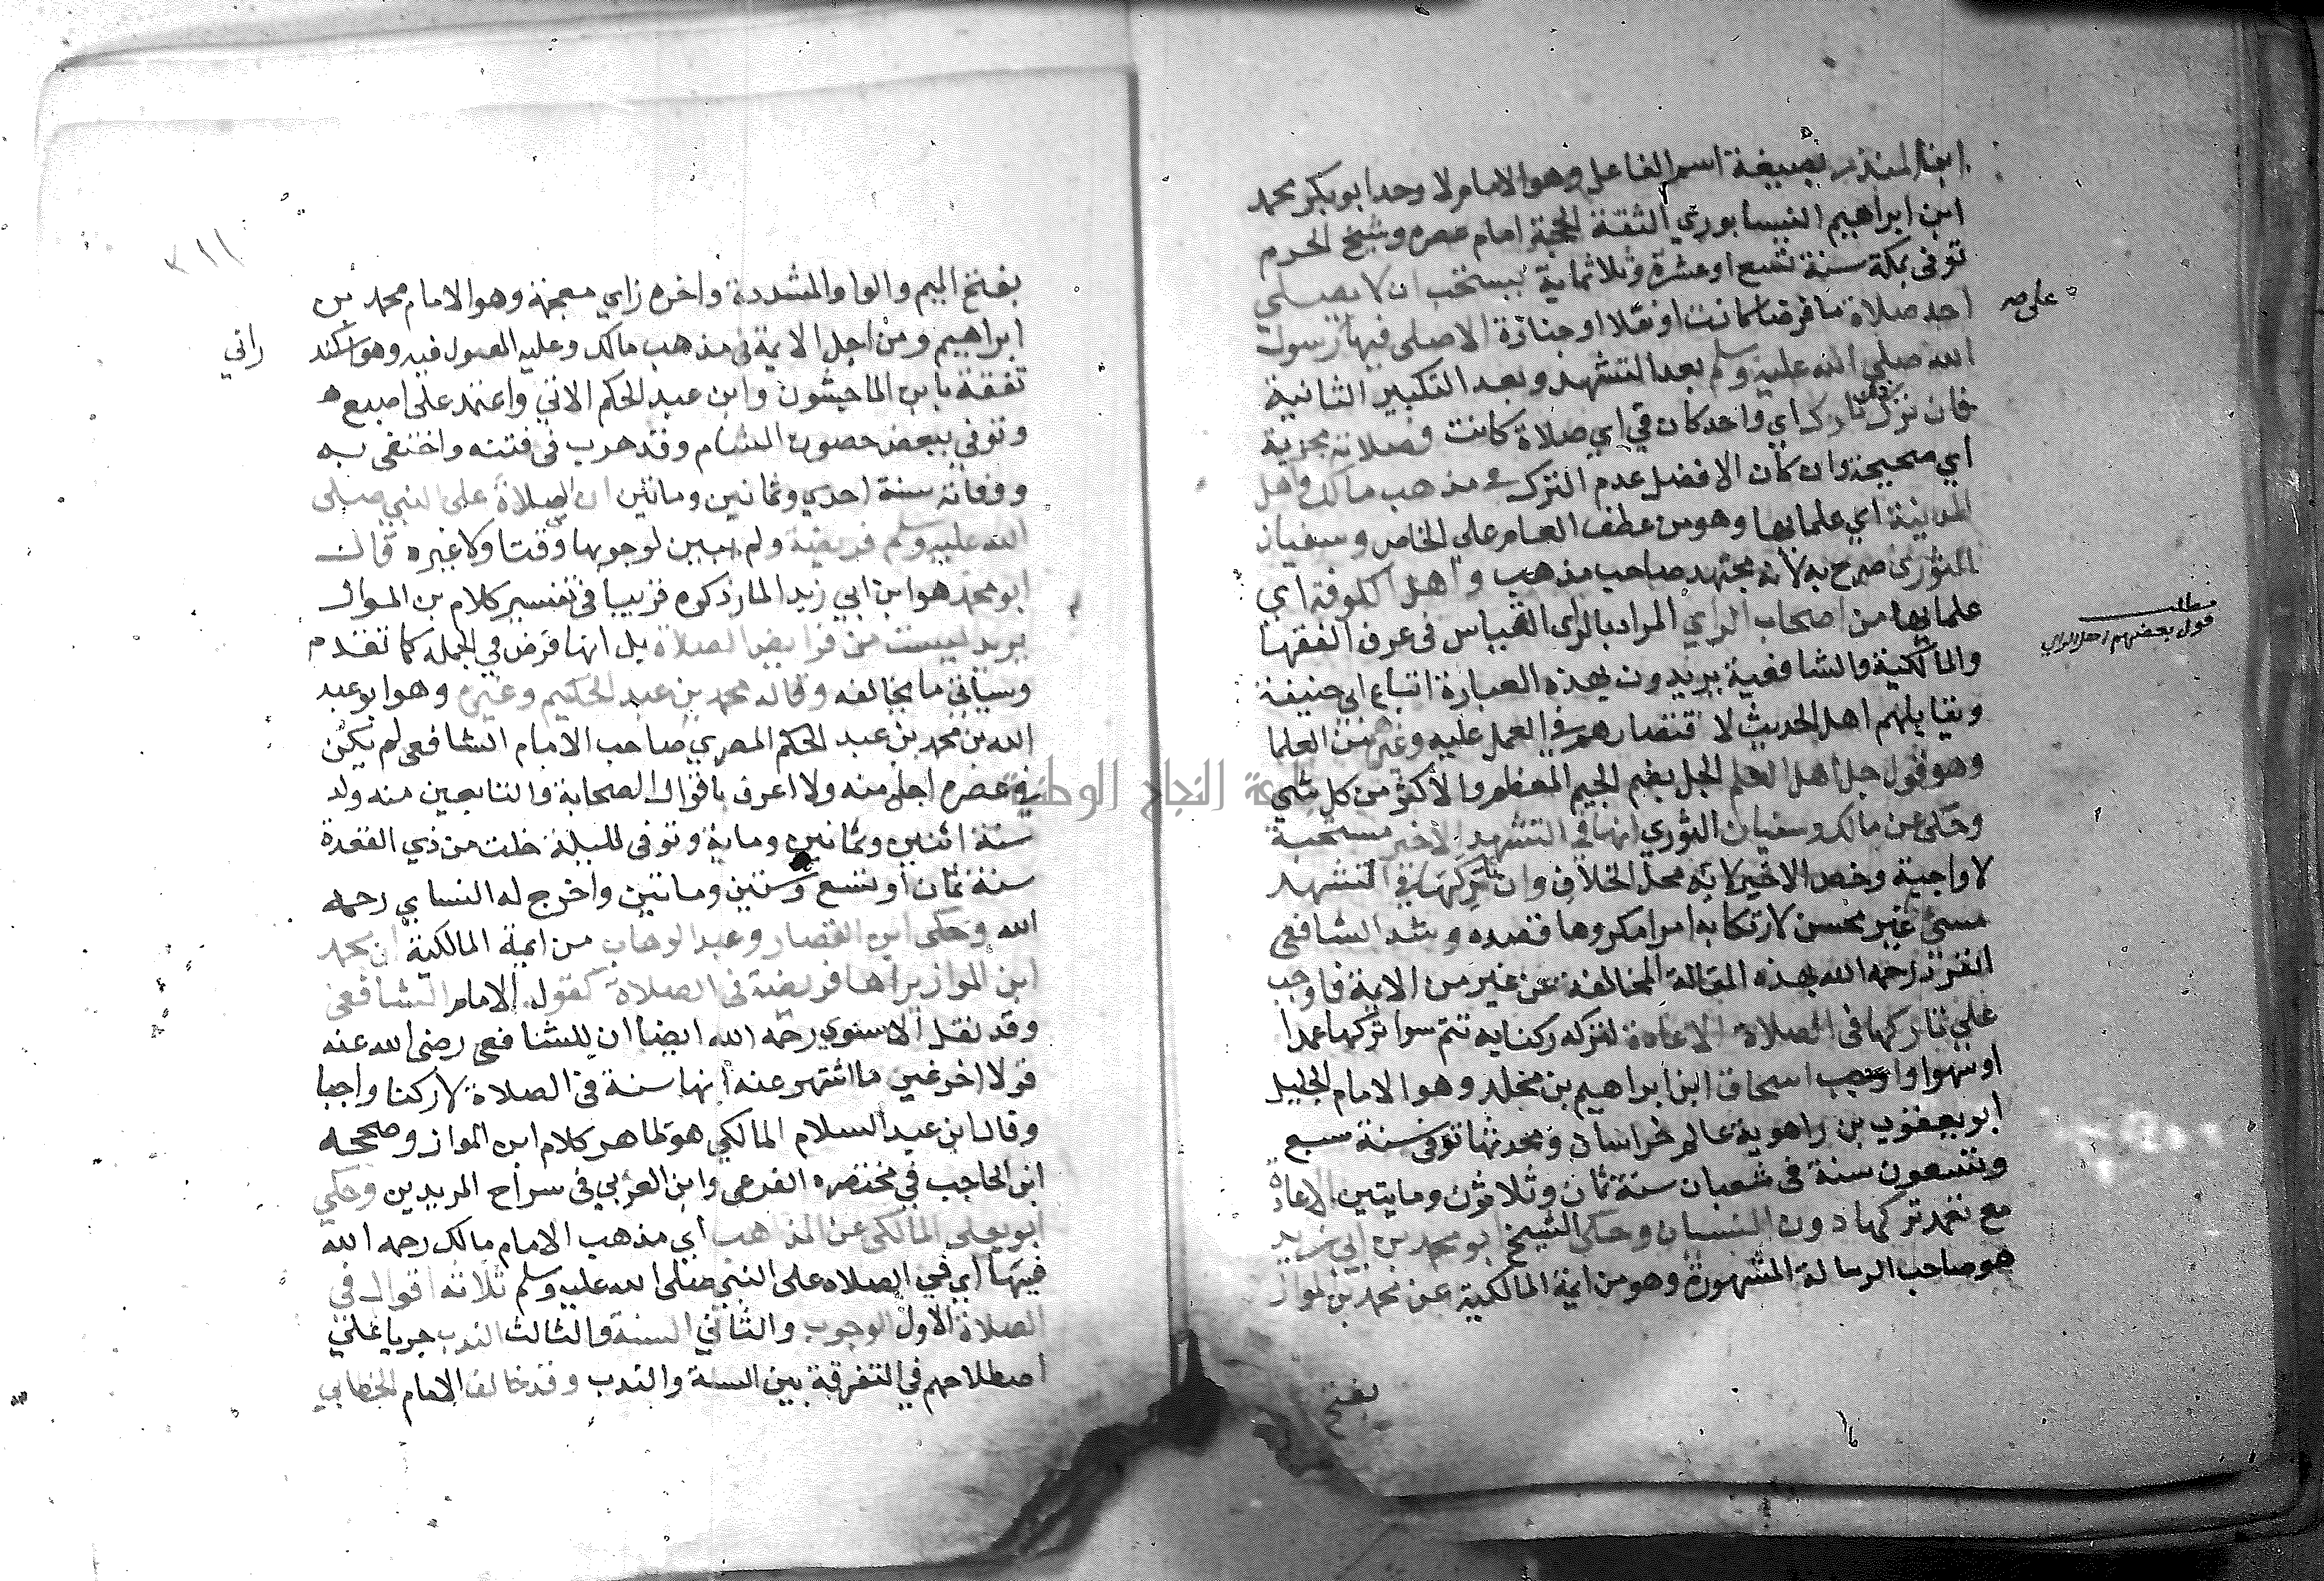 ابن المنذر بصيغة اسم الفاعل وهو الامام الاوحد ابو بكر محمد
ابن ابراهيم النيسابوري الثقة الحجة امام عصره وشيخ الحرم
توفى بمكة سنة تسع او عشرة وثلاثماية يستحب ان لا يصلي
احد صلاة ما فرضا كانت او نفلا او جنازة الا صلى فيها رسول
على صـ
الله صلى الله عليه وسلم بعد التشهد وبعد التكبير الثانية
فان ترك ذلك تارك اي واحد كان في اي صلاة كانت فصلاته مجزية
اي صحيحة وان كان الافضل عدم الترك في مذهب مالك واهل
المدينة اي علمايها وهو من عطف العام على الخاص وسفيان
الثورى صرح به لانه مجتهد صاحب مذهب واهل الكوفة اي
علمايها من اصحاب الراي المراد بالراى القياس فى عرف الفقها
مطلب
قول بعضهم اهل الراي
والمالكية والشافعية يريدون بهذه العبارة اتباع ابى حنيفة
ويقابلهم اهل الحديث لاقتصارهم في العمل عليه وغيرهم من العلما
وهو قول جل اهل العلم الجل بضم الجيم المعظم والاكثر من كل شي
وحكى عن مالك وسفيان الثوري انها في التشهد الاخير مستحبة
لا واجبة وخص الاخير لانه محل الخلاف وان تاركها في التشهد
مسئ غير محسن لارتكابه امرا مكروها قصده وشد الشافعي
الفرد رحمه الله بهذه المقالة المخالفة عن غير من الايمة فاوجب
على تاركها فى الصلاة الاعادة لتركه ركنا به تتم سوا تركها عمدا
او سهوا واوجب اسحاق ابن ابراهيم بن مخلد وهو الامام الجليل
ابو يعقوب بن راهوية عالم خراسان ومحدثها توفى سنة سبع
وتسعون سنة فى شعبان سنة ثمان وثلاثون ومايتين الاعادة
مع تعمد تركها دون النسيان وحكى الشيخ ابو محمد بن ابي زيد
هو صاحب الرسالة المشهورة وهو من ايمة المالكية عن محمد بن المواز
بفتح
٣١١
بفتح الميم والواو المشددة واخره زاي معجمة وهو الامام محمد بن
ابراهيم ومن اجل الايمة فى مذهب مالك وعليه المعول فيه وهو اسكند
راني
تفقه بابن الماجشون وابن عبد الحكم الاتي واعتمد على اصبع
وتوفي ببعض حصون الشام وقد هرب فى فتنته واختفى به
ووفاته سنة احدي وثمانين وماتين ان الصلاة على النبي صلى
الله عليه وسلم فريضة ولم يبين لوجوبها وقتا ولا غيره قال
ابو محمد هو ابن ابي زيد المار ذكره قريبا فى تفسير كلام بن المواز
يريد ليست من فرايض الصلاة بل انها فرض في الجملة كما تقدم
وسياتي ما يخالفه وقاله محمد بن عبد الحكيم وغيره وهو ابو عبد
الله بن محمد بن عبد الحكم المصري صاحب الامام الشافعى لم يكن
في عصره اجل منه ولا اعرف باقوال الصحابة والتابعين منه ولد
سنة اثنين وثمانين وماية وتوفى لليلة خلت من ذي القعدة
سنة ثمان او تسع وستين وماتين واخرج له النساي رحمه
الله وحكى ابن القصار وعبد الوهاب من ايمة المالكية ان محمد
ابن المواز يراها فريضة فى الصلاة كقول الامام الشافعي
وقد نقل الاسنوي رحمه الله ايضا ان للشافعى رضى الله عنه
قولا اخر غير ما اشتهر عنه انها سنة فى الصلاة لا ركنا واجبا
وقال ابن عبد السلام المالكي هو ظاهر كلام ابن المواز وصححه
ابن الحاجب في مختصره الفرعى وابن العربي فى سراج المريدين وحكي
ابو يعلى المالكى عن المذاهب اي مذهب الامام مالك رحمه الله
فيها اي في الصلاه على النبي صلى الله عليه وسلم ثلاثه اقوال فى
الصلاة الاول الوجوب والثاني السنة والثالث الندب جريا على
اصطلاحهم في التفرقة بين السنة والندب وقد خالف الامام الخطابي
جامعة النجاح الوطنية